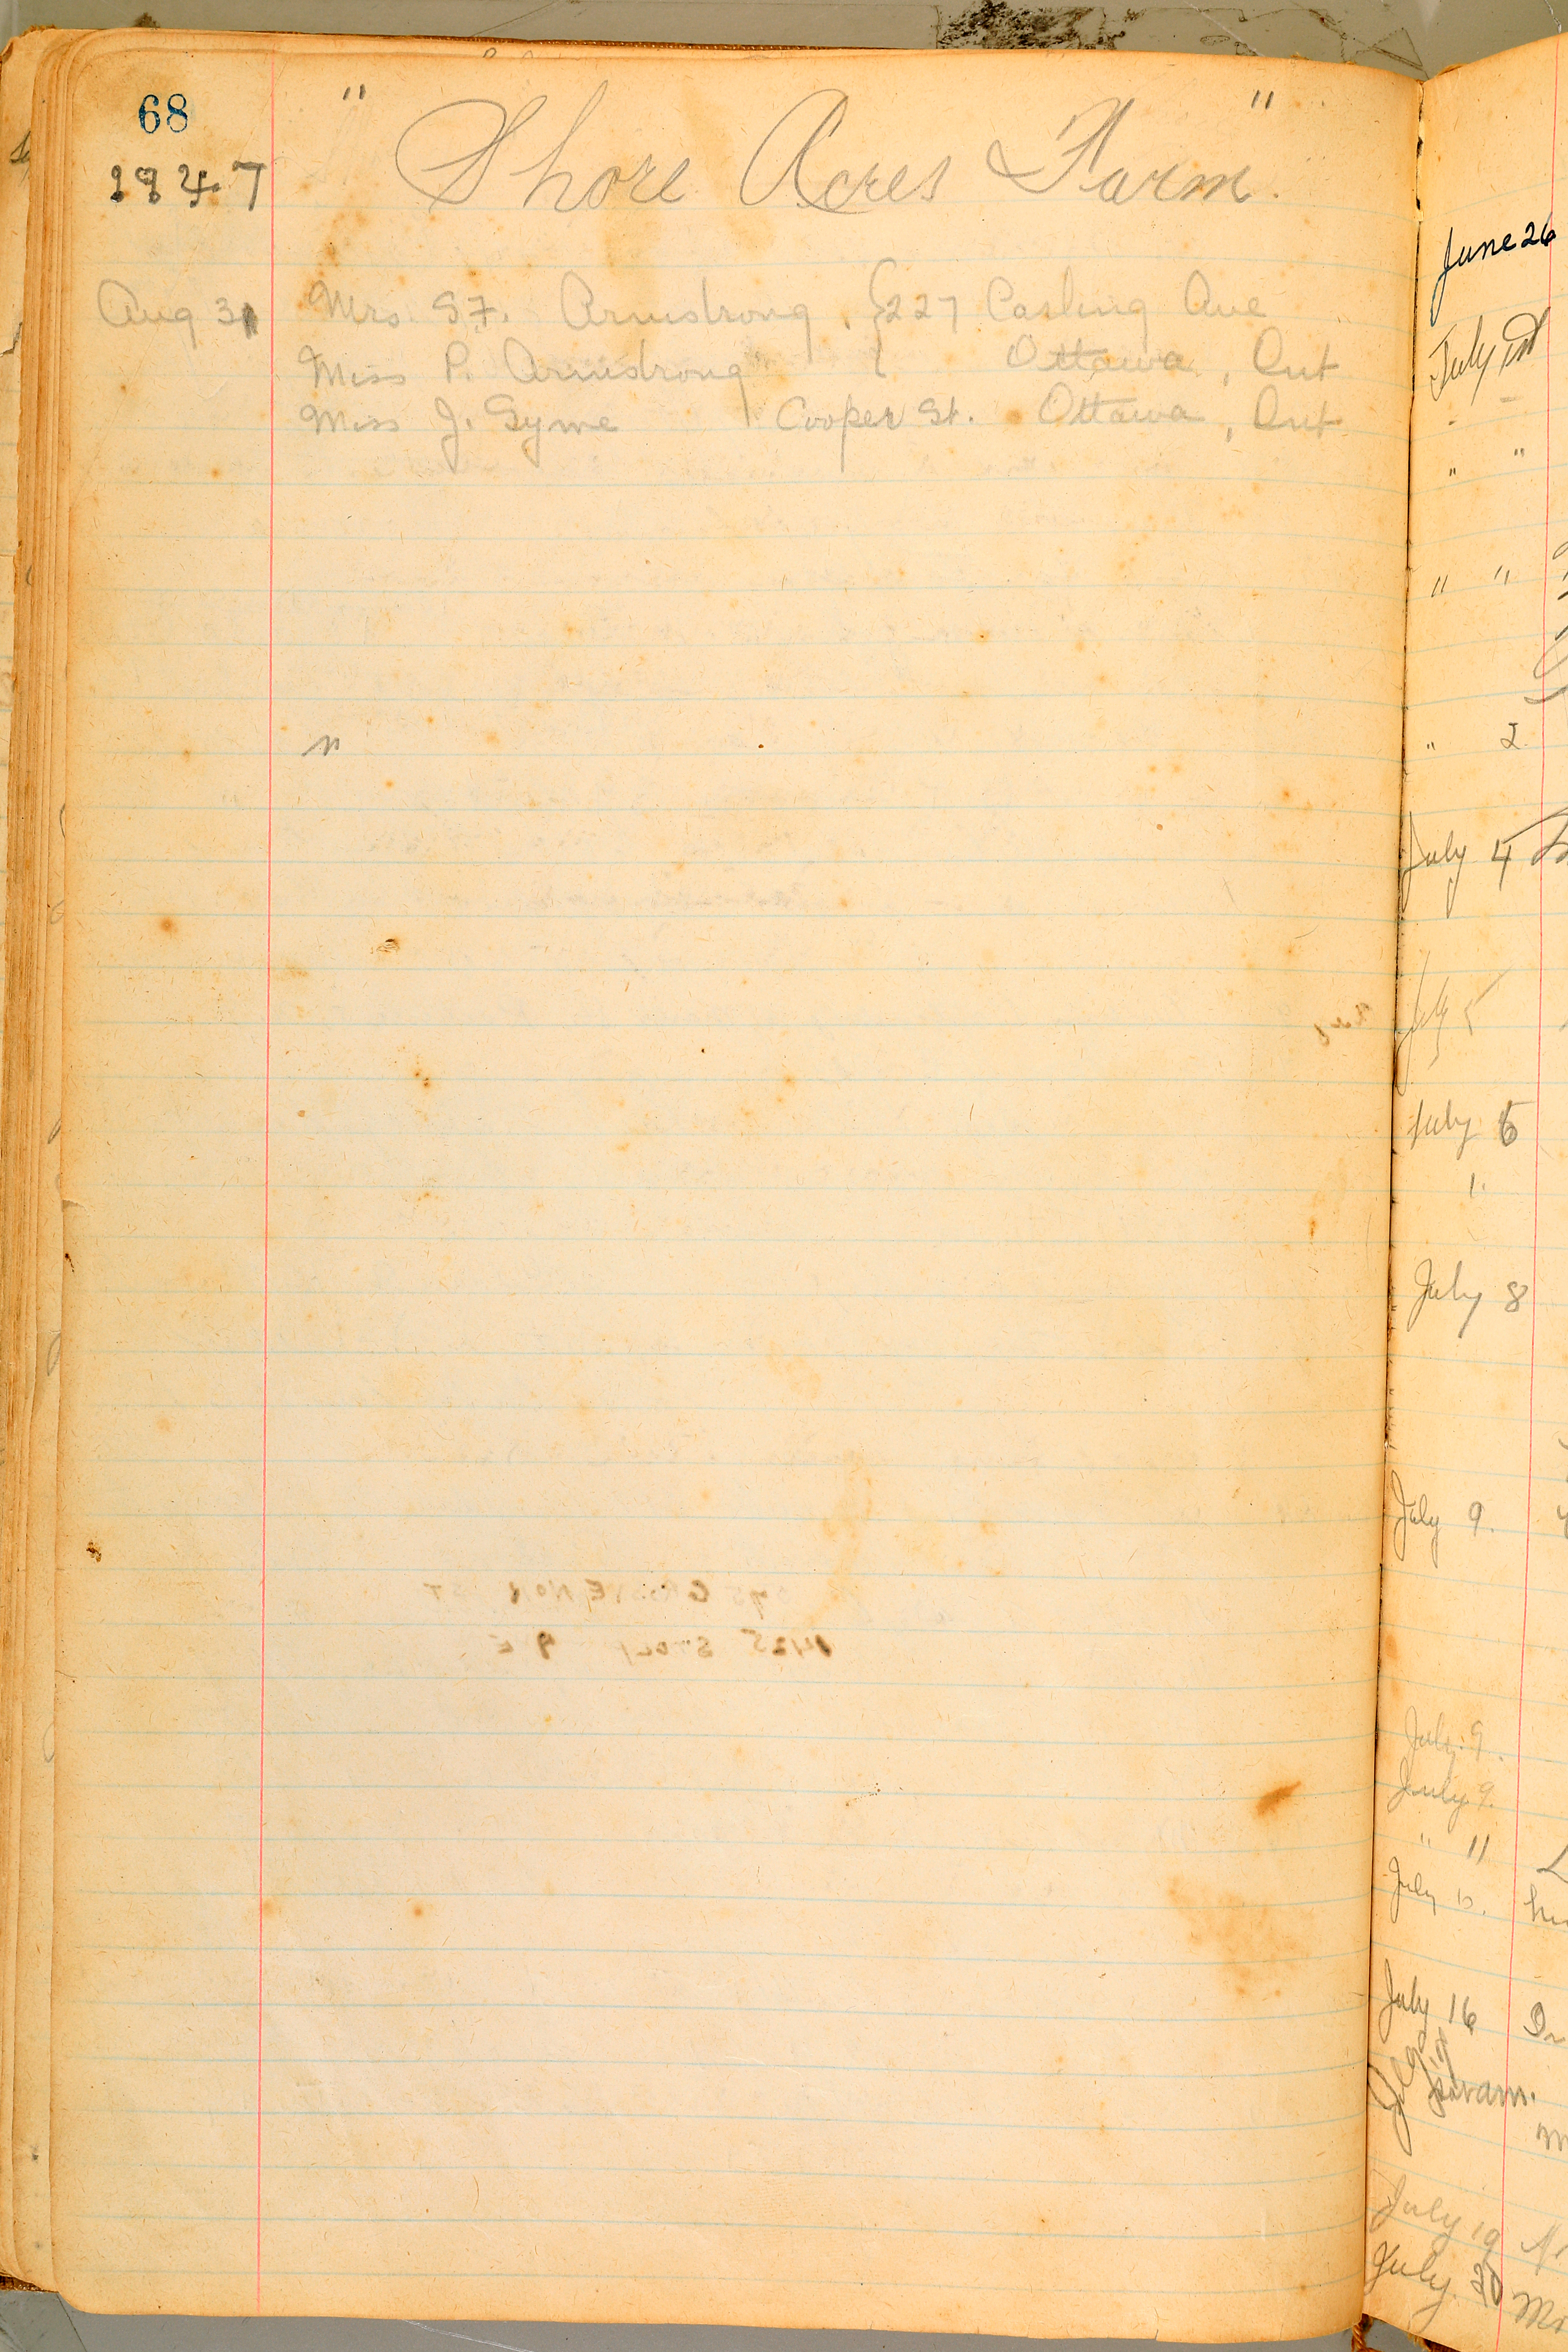 68
1947
" Shore Acres Farm".
Aug 31 Mrs. S.F. Armstrong. {227 Carling Ave
Miss P. Armstrong { Ottawa, Ont
Miss J. Syme Cooper St. Ottawa, Ont
n
June 26
July 1st
" "
" "
" 2
July 4
July 5
July 6
July 8
July 9.
July 9.
July 9.
" 11
July 10.
July 16
July 19
July. 20